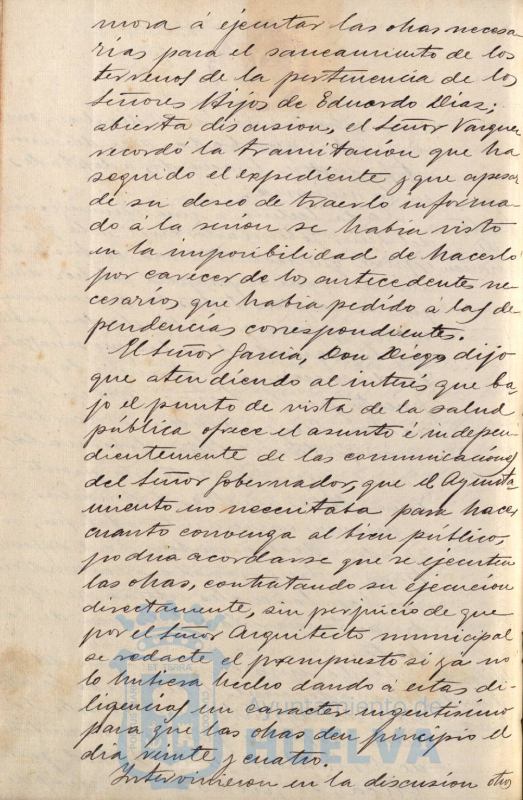 mora á ejecutar las obras necesa
rias para el saneamiento de los
terrenos de la pertenencia de los
Señores Hijos de Eduardo Diaz;
abierta discusion, el Señor Vazquez
recordó la tramitación que ha
seguido el expediente y que apesar
de su deseo de traerlo informa-
do á la sesión se habia visto
en la imposibilidad de hacerlo
por carecer de los antecedentes ne
cesarios que habia pedido á las de
pendencias correspondientes.
El Señor Garcia, Don Diego dijo
que atendiendo al interés que ba-
jo el punto de vista de la salud
pública ofrece el asunto é indepen
dientemente de las comunicaciones
del Señor Gobernador, que el Ayunta
miento no necesitaba para hacer
cuanto convenga al bien público,
podria acordarse que se ejecuten
las obras, contratando su ejecucion
directamente, sin perjuicio de que
por el Señor Arquitecto municipal
se redacte el presupuesto si ya no
lo hubiera hecho dando á estas di-
ligencias un caracter urgentisimo
para que las obras den principio el
dia veinte y cuatro.
Intervinieron en la discusion otros
Ayuntamiento de
HUELVA